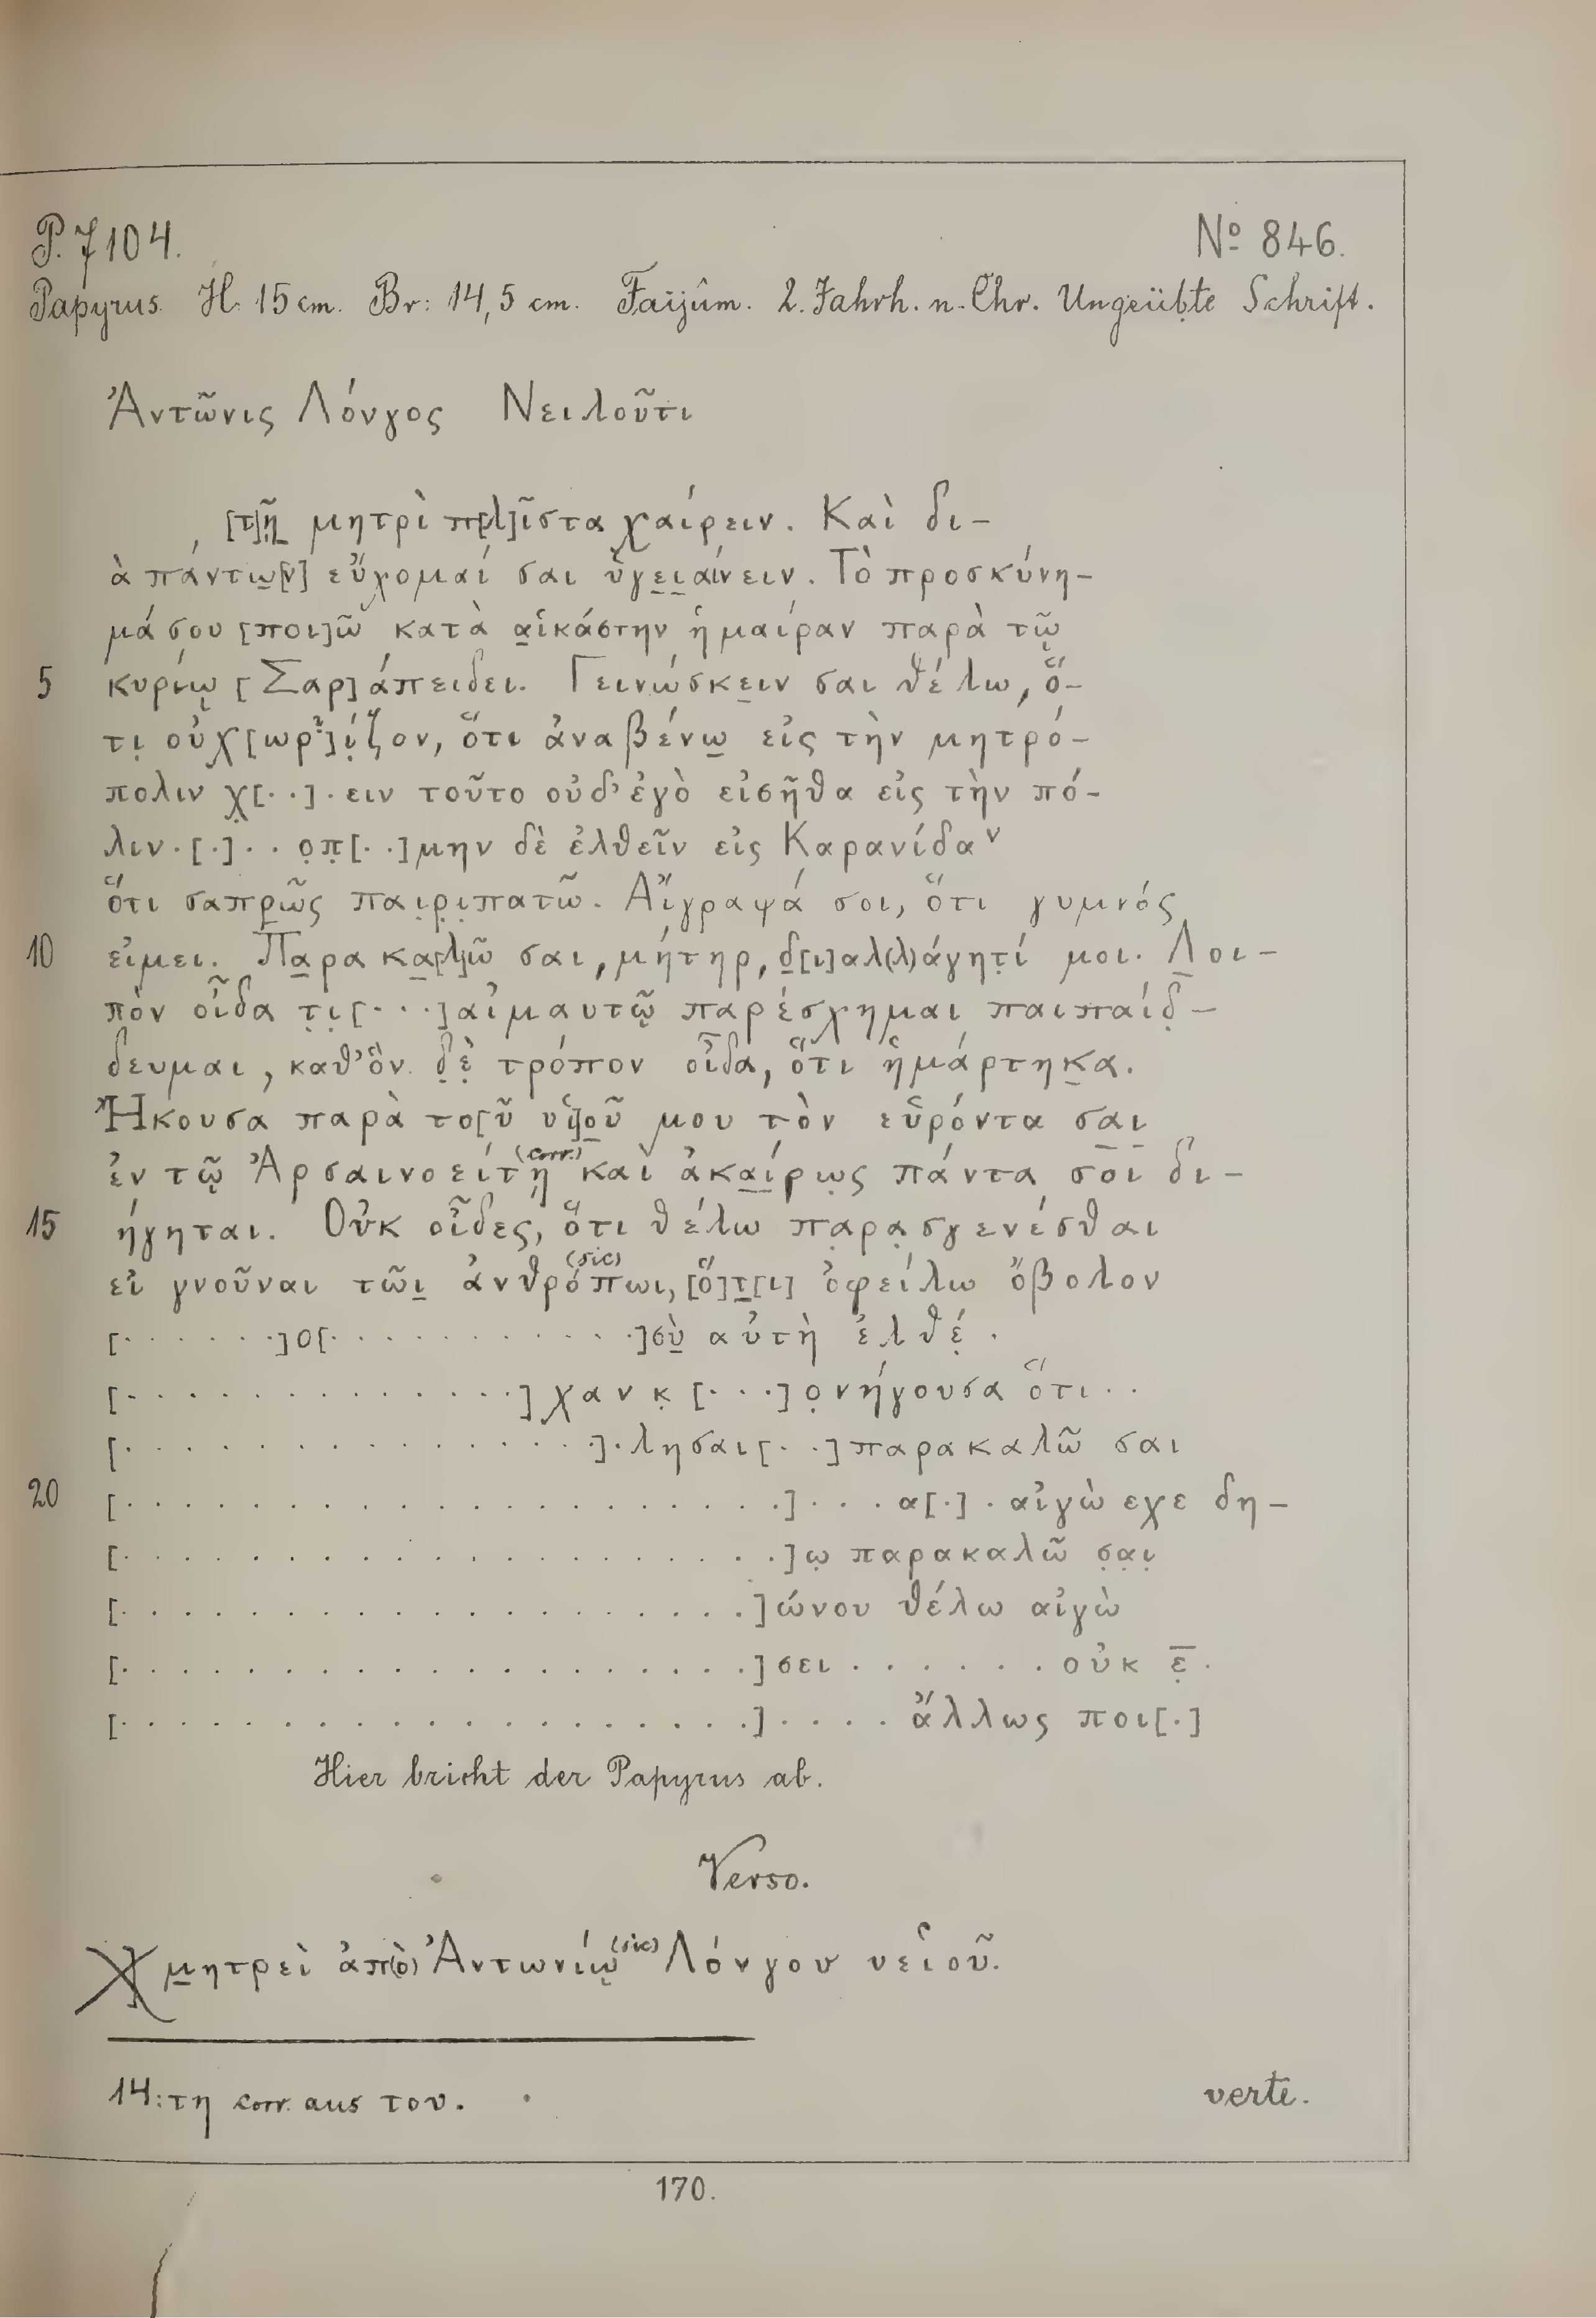 P. 7104.
Nº 846.
Papyrus. H: 15 cm. Br: 14,5 cm. Faijûm. 2. Jahrh. n. Chr. Ungeübte Schrift.
Ἀντῶνις Λόνγος Νειλοῦτι
[τ]ῇ μητρὶ π[λ]ῖστα χαίρειν. Καὶ δι-
ὰ πάντω[ν] εὔχομαί σαι ὑγειαίνειν. Τὸ προσκύνη-
μά σου [ποι]ῶ κατὰ αἱκάστην ἡμαίραν παρὰ τῷ
5 κυρίῳ [Σαρ]άπειδει. Γεινώσκειν σαι θέλω, ὅ-
τι οὐχ [ωρ]ίζον, ὅτι ἀναβένω εἰς τὴν μητρό-
πολιν χ̣[··]·ειν τοῦτο οὐδ' ἐγὸ εἰσῆθα εἰς τὴν πό-
λιν·[·]··ο̣π̣[··]μην δὲ ἐλθεῖν εἰς Καρανίδαν
ὅτι σαπρῶς παιρ̣ι̣πατῶ. Αἴγραψά σοι, ὅτι γυμνός
10 εἰμει. Παρακα[λ]ῶ σαι, μήτηρ, δ[ι]αλ(λ)άγητ̣ί μοι. Λοι-
πὸν οἶδα τ̣ι̣[···]αἰμαυτῷ παρέσχημαι παιπαίδ̣-
δευμαι, καθ' ὃν δ̣ὲ̣ τρόπον οἶδα, ὅτι ἡμάρτηκα.
Ἤκουσα παρὰ το[ῦ υἱ]οῦ μου τὸν εὑρόντα σαι
ἐν τῷ Ἀρσαινοείτῃ (corr.) καὶ ἀκαίρως πάντα σοι δι-
15 ήγηται. Οὐκ οἶδες, ὅτι θέλω πα̣ρα̣σγενέσθαι
εἰ γνοῦναι τῶι ἀνθρόπωι (sic), [ὅ]τ[ι] ὀφείλω ὄβολον
[·······]ο[············]σὺ αὐτὴ ἐλθέ̣.
[·············]χαν κ̣[···]ο̣νήγουσα ὅτι··
[···············]·λησαι[··]παρακαλῶ σαι
20 [····················]···α[·]·αἰγὼ εχε δη-
[····················]ῳ παρακαλῶ σ̣α̣ι̣
[···················]ώνου θέλω αἰγὼ
[···················]σει······οὐκ ε̣̅·
[···················]····ἄλλως ποι[·]
Hier bricht der Papyrus ab.
Verso.
] μητρεὶ ἀπ(ὸ) Ἀντωνίῳ (sic) Λόνγου υείοῦ.
14: τη corr. aus του.
verte.
170.